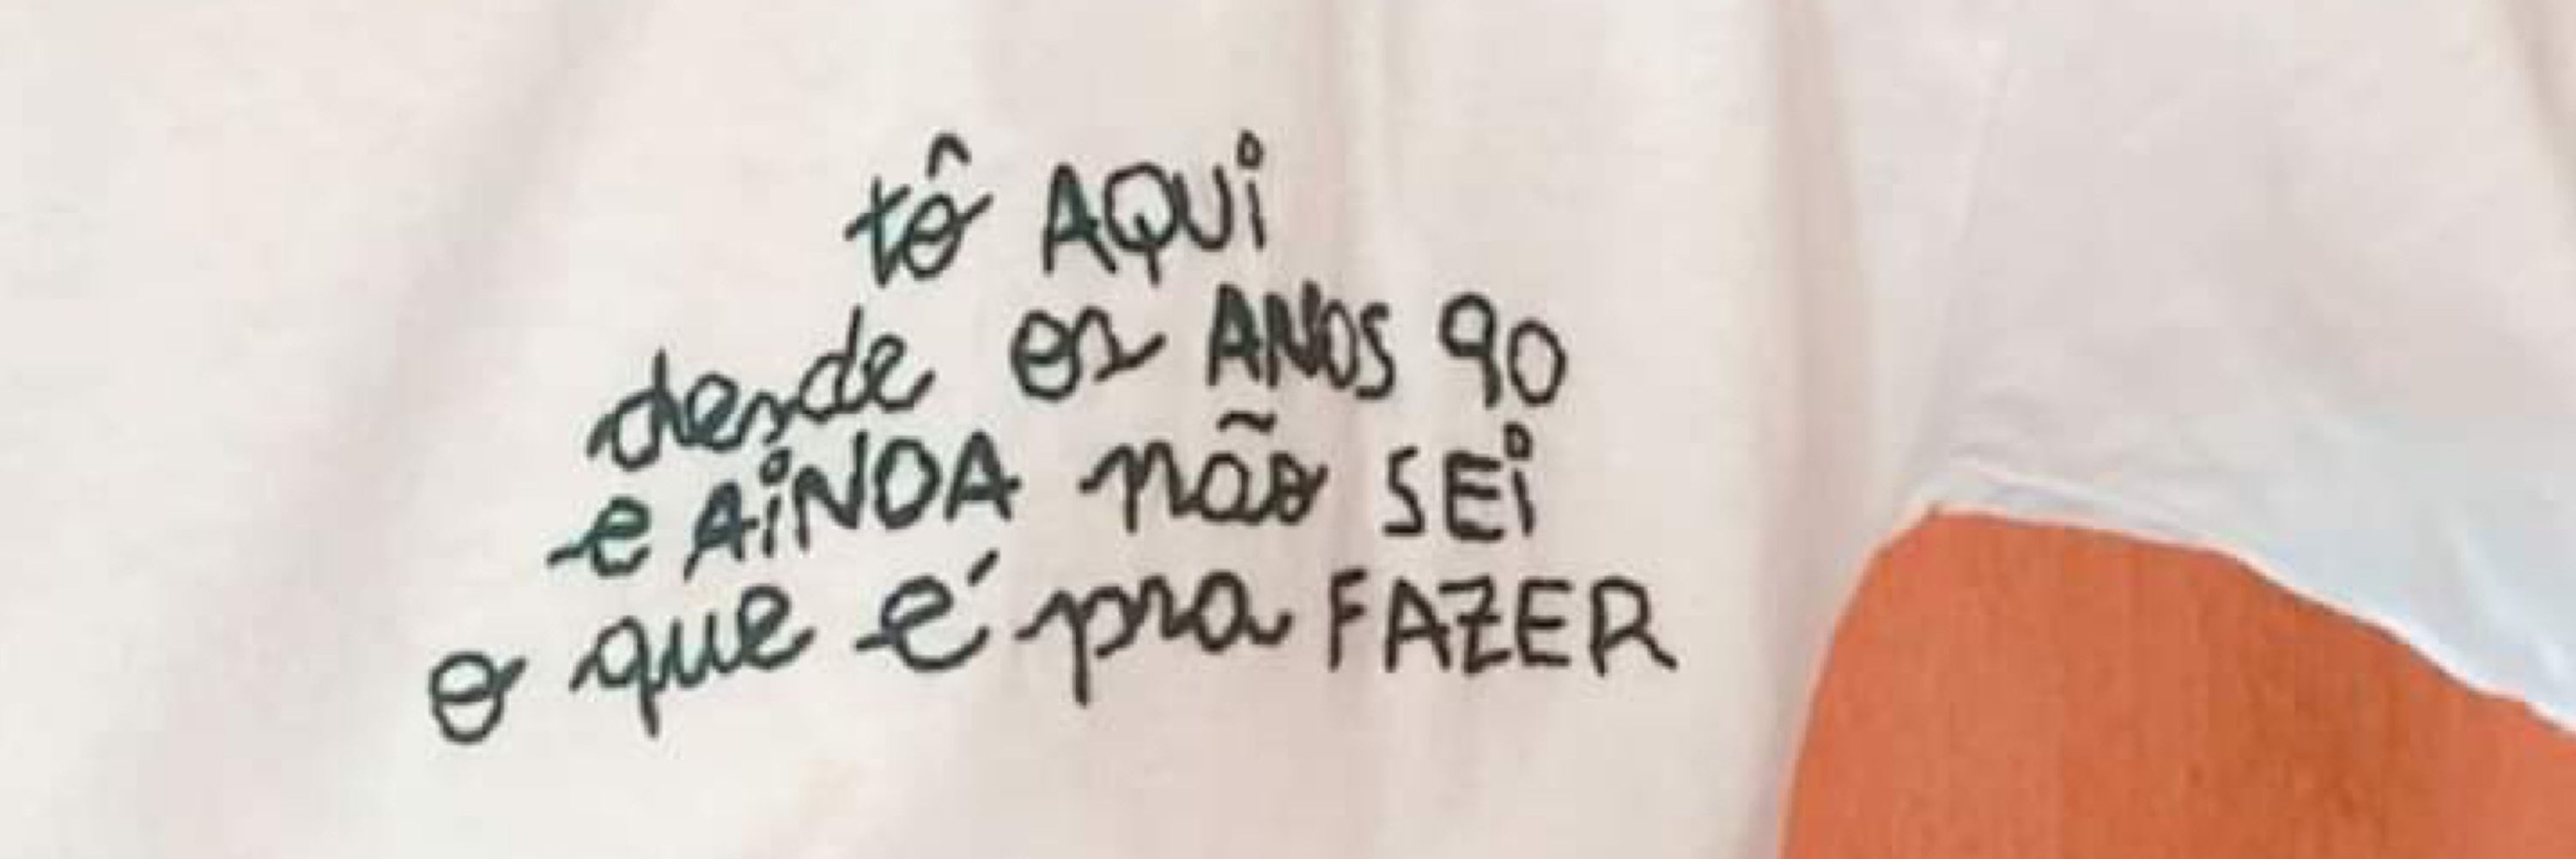 tô AQUi
desde os ANOS 90
e AiNDA não SEi
o que é pra FAZER